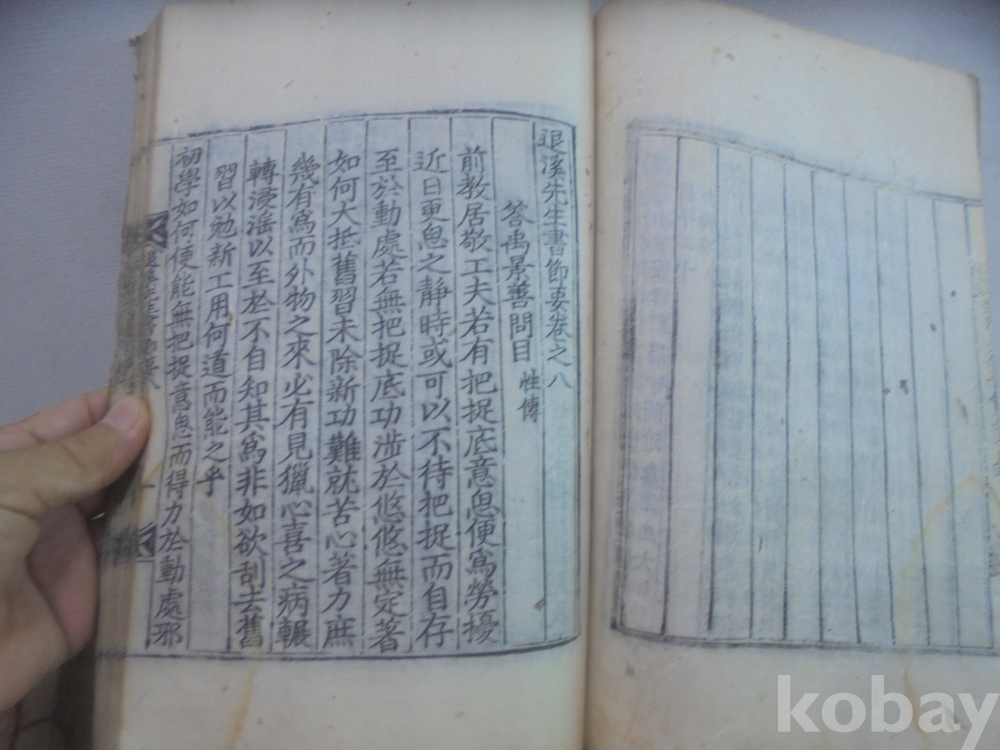 退溪先生書節要卷之八
答禹景善問目 性傳
前教居敬工夫若有把捉底意思便爲勞擾
近日更思之靜時或可以不待把捉而自存
至於動處若無把捉底功涉於悠悠無定著
如何大抵舊習未除新功難就苦心著力庶
幾有爲而外物之來必有見獵心喜之病輾
轉浸滛以至於不自知其爲非如欲刮去舊
習以勉新工用何道而能之乎
初學如何便能無把捉意思而得力於動處邪
kobay